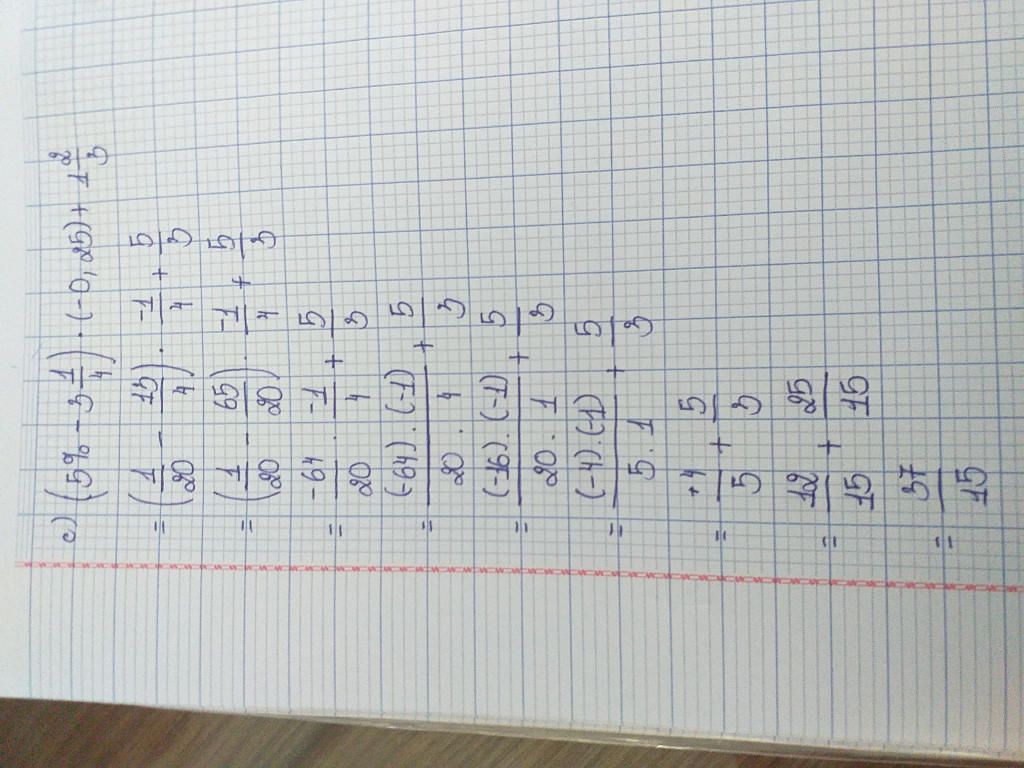 c) (5% - 3 1/4) . (-0,25) + 1 2/3
= (1/20 - 13/4) . -1/4 + 5/3
= (1/20 - 65/20) . -1/4 + 5/3
= -64/20 . -1/4 + 5/3
= (-64).(-1)/20 . 4 + 5/3
= (-16).(-1)/20 . 1 + 5/3
= (-4).(-1)/5 . 1 + 5/3
= +4/5 + 5/3
= 12/15 + 25/15
= 37/15